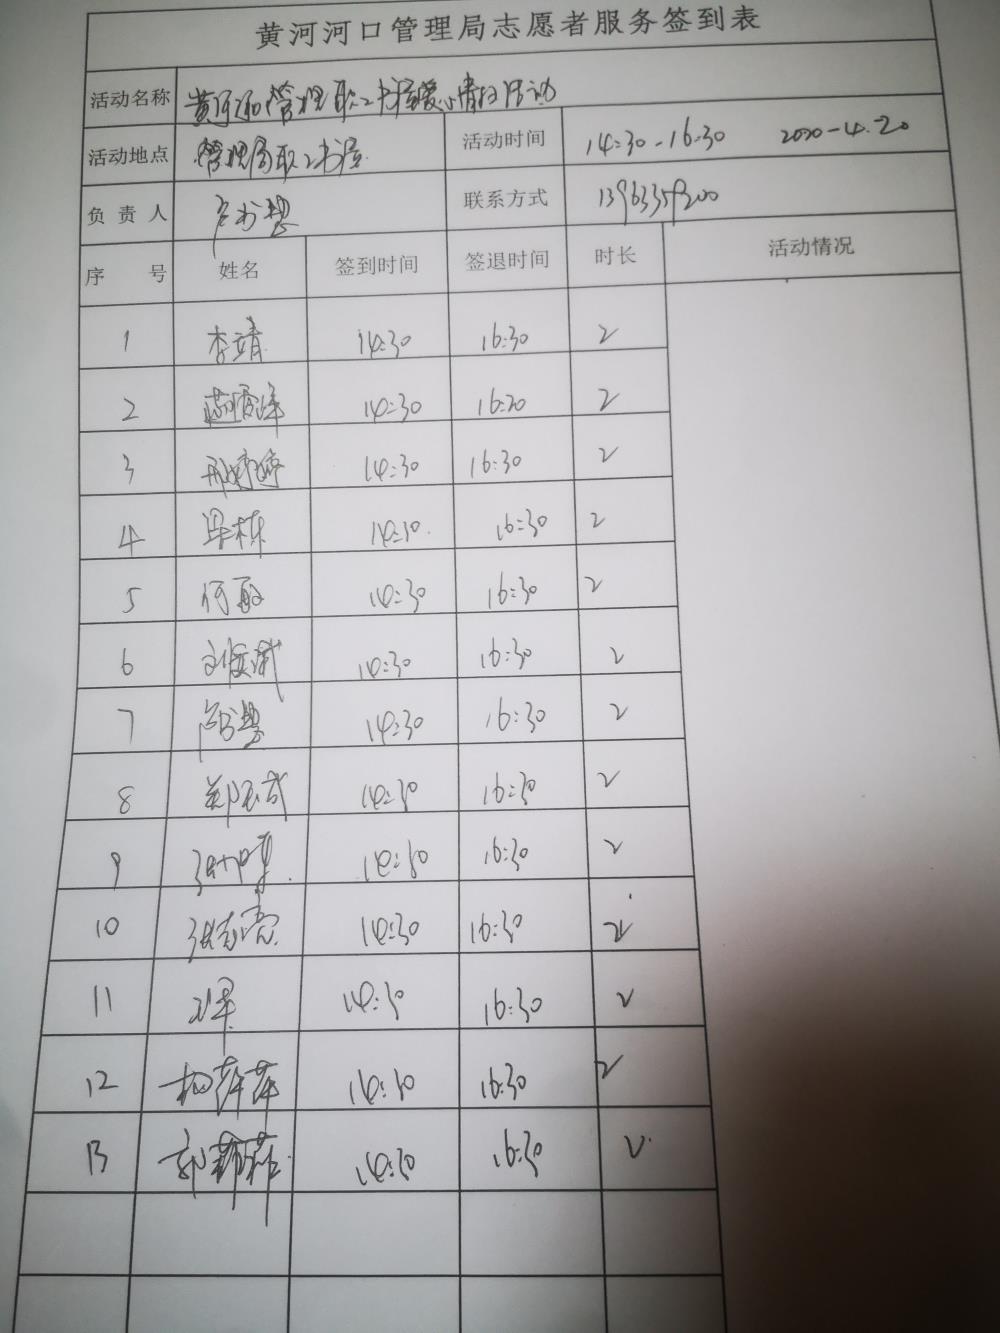 黄河河口管理局志愿者服务签到表
活动名称 黄河河口管理局职工书屋爱心清扫活动
活动地点 管理局职工书屋 活动时间 14:30-16:30 2020-4.20
负责人 联系方式
序号 姓名 签到时间 签退时间 时长 活动情况
1 李靖 14:30 16:30 2
2 14:30 16:20 2
3 14:30 16:30 2
4 梁栋 14:30 16:30 2
5 何敏 14:30 16:30 2
6 14:30 16:30 2
7 14:30 16:30 2
8 14:30 16:30 2
9 14:30 16:30 2
10 14:30 16:30 2
11 14:30 16:30 2
12 杨萍萍 14:30 16:30 2
13 14:30 16:30 2